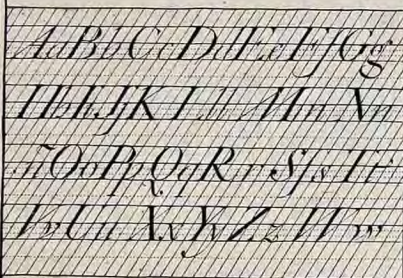 AaBbCcDdEeFfGg
HhIiJjKkLlMmNn
ñOoPpQqRrSſsTt
VvUuXxYyZzWw